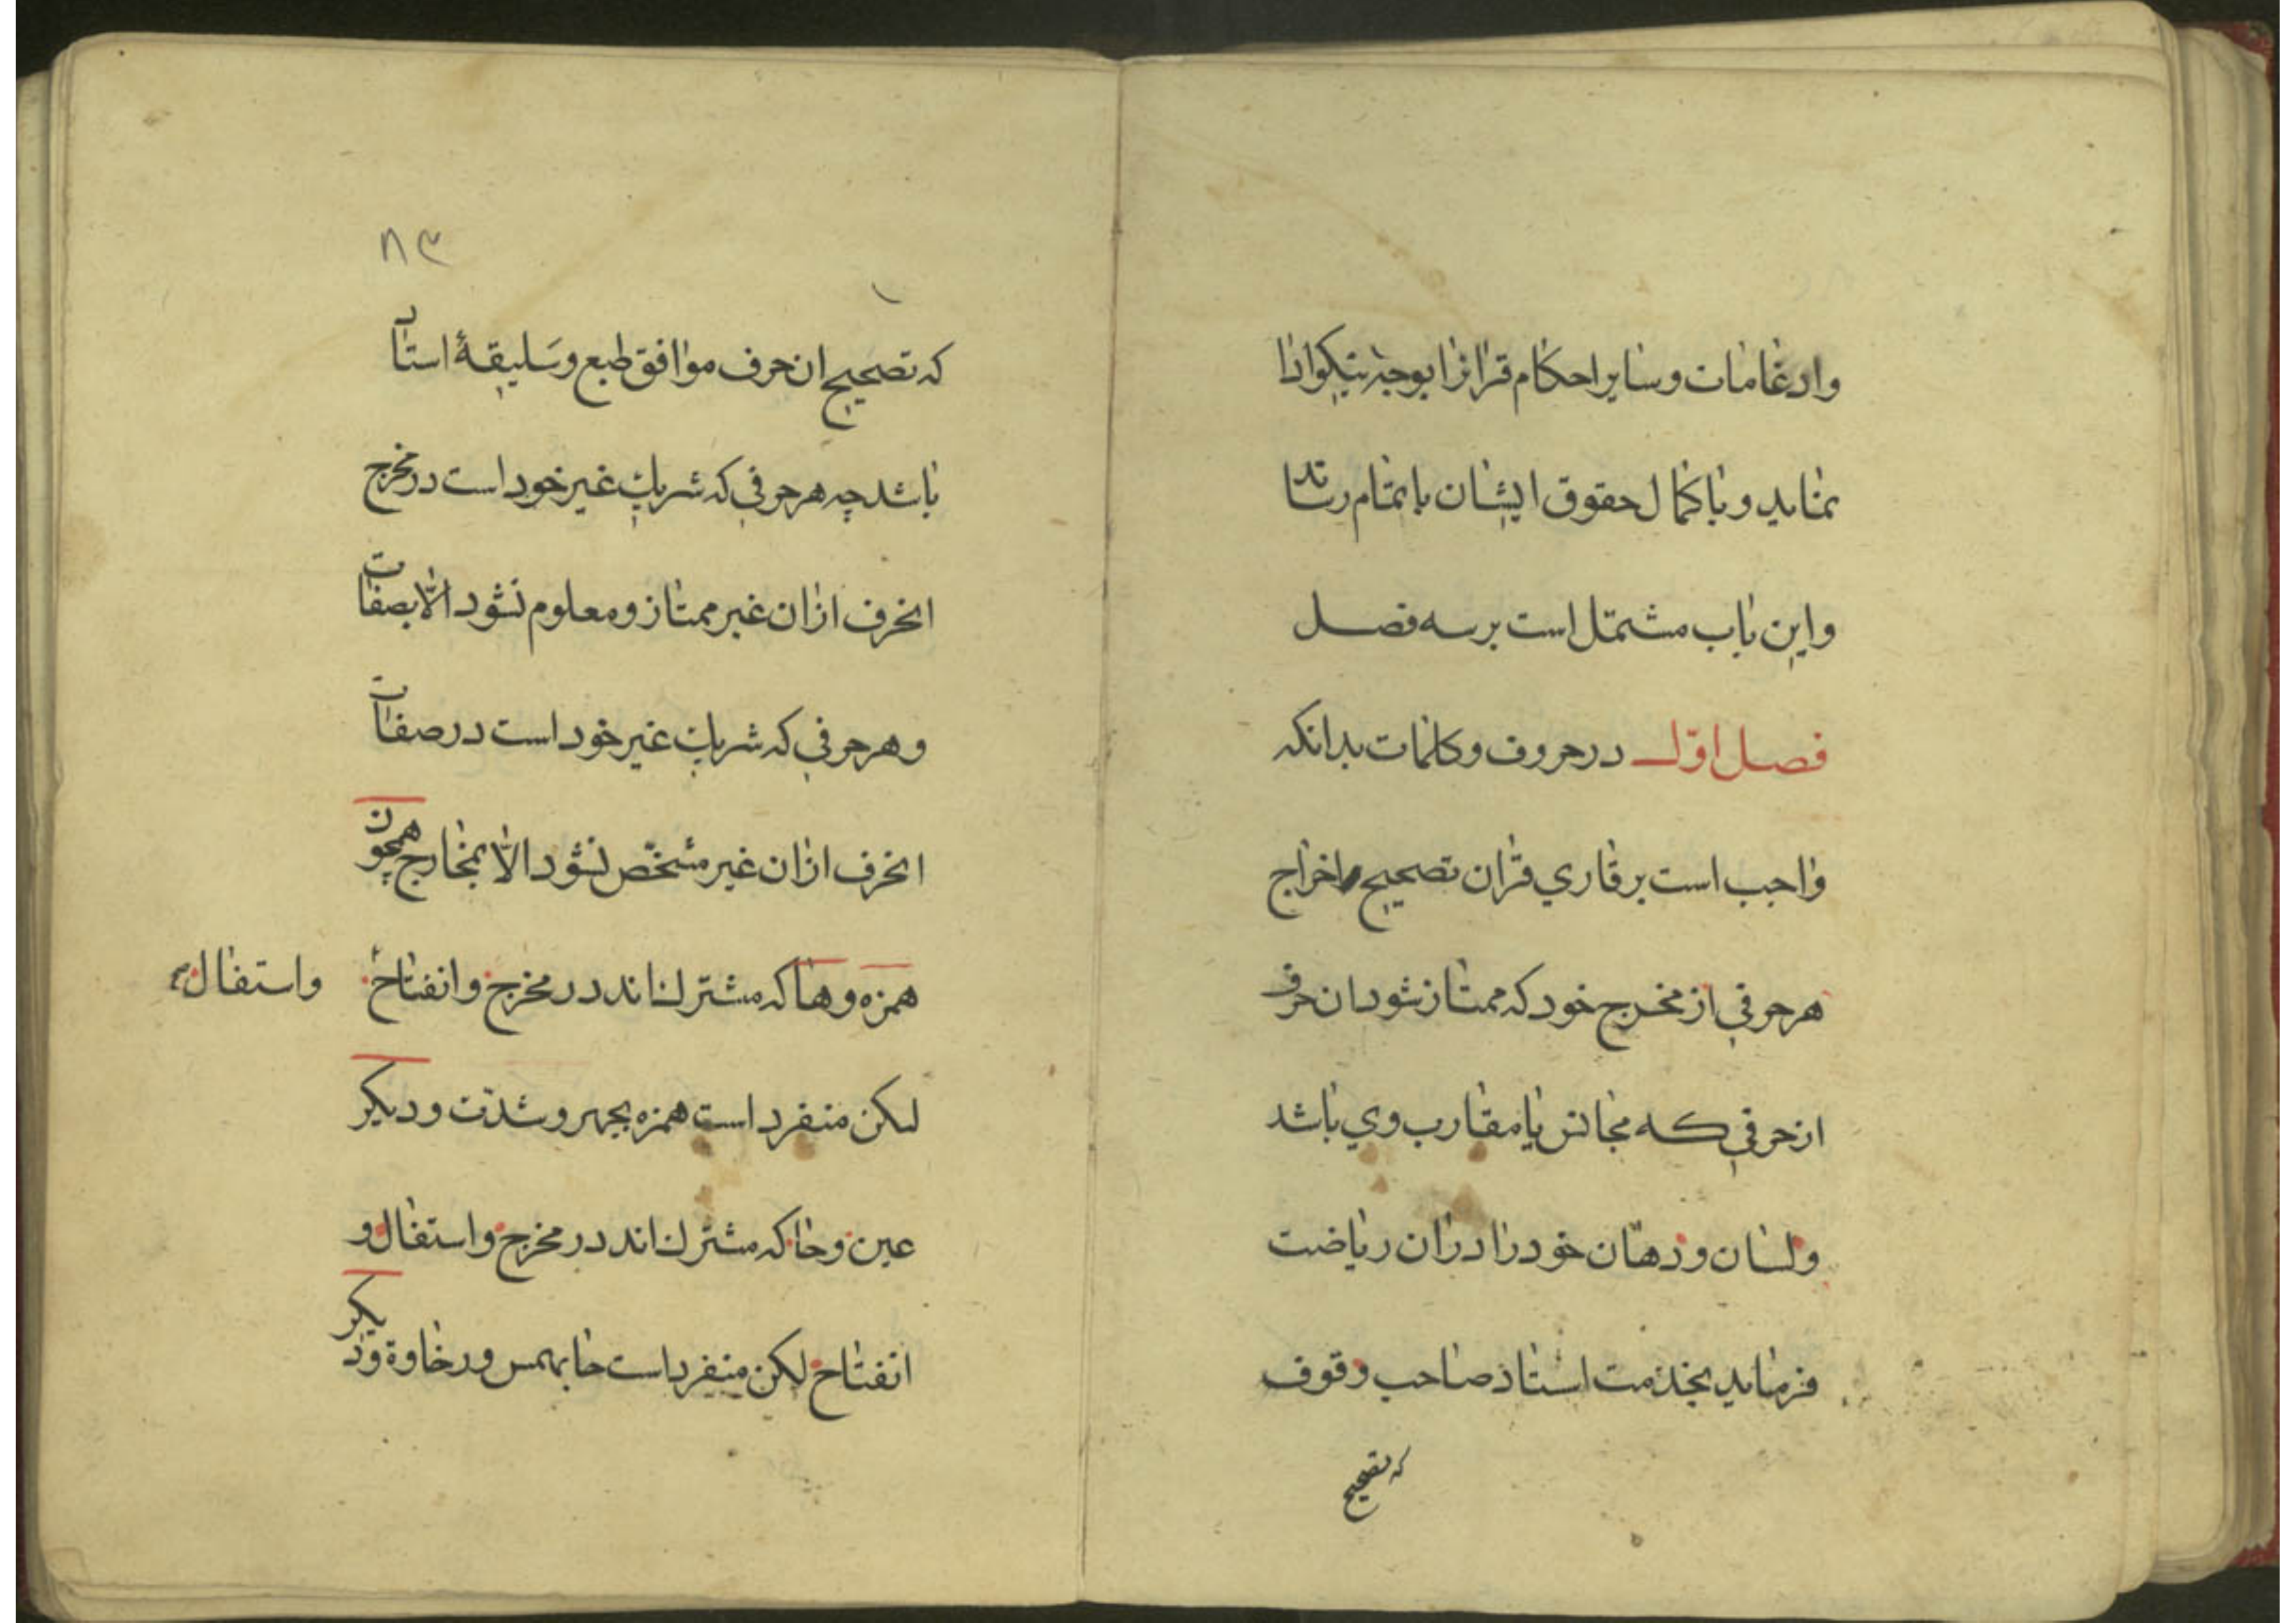 وادغامات وسایر احکام قرانرا بوجه نیکو ادا
نماید و با کمال حقوق ایشان باتمام رساند
واین باب مشتمل است بر سه فصل
فصل اوّل در حروف وکلمات بدانکه
واجب است بر قاري قران تصحیح اخراج
هر حرفي از مخرج خود که ممتاز شود ان حرف
از حرفي که مجانس یا مقارب وي باشد
ولسان ودهان خود را دران ریاضت
فرماید بخدمت استاد صاحب وقوف
که تصحیح
۸۳
که تصحیح ان حرف موافق طبع وسَلیقهٔ استاد
باشد چه هر حرفي که شریك غیر خود است در مخرج
انحرف ازان غیر ممتاز ومعلوم نشود الّا بصفات
وهر حرفي که شریك غیر خود است در صفات
انحرف ازان غیر مشخّص نشود الّا بمخارج همچون
همزه وها که مشترك اند در مخرج وانفتاح واستفال
لیکن منفرد است همزه بجهر وشدّت ودیکر
عین وحا که مشترك اند در مخرج واستفال و
انفتاح لیکن منفرد است حا بهمس ورخاوة ودیکر